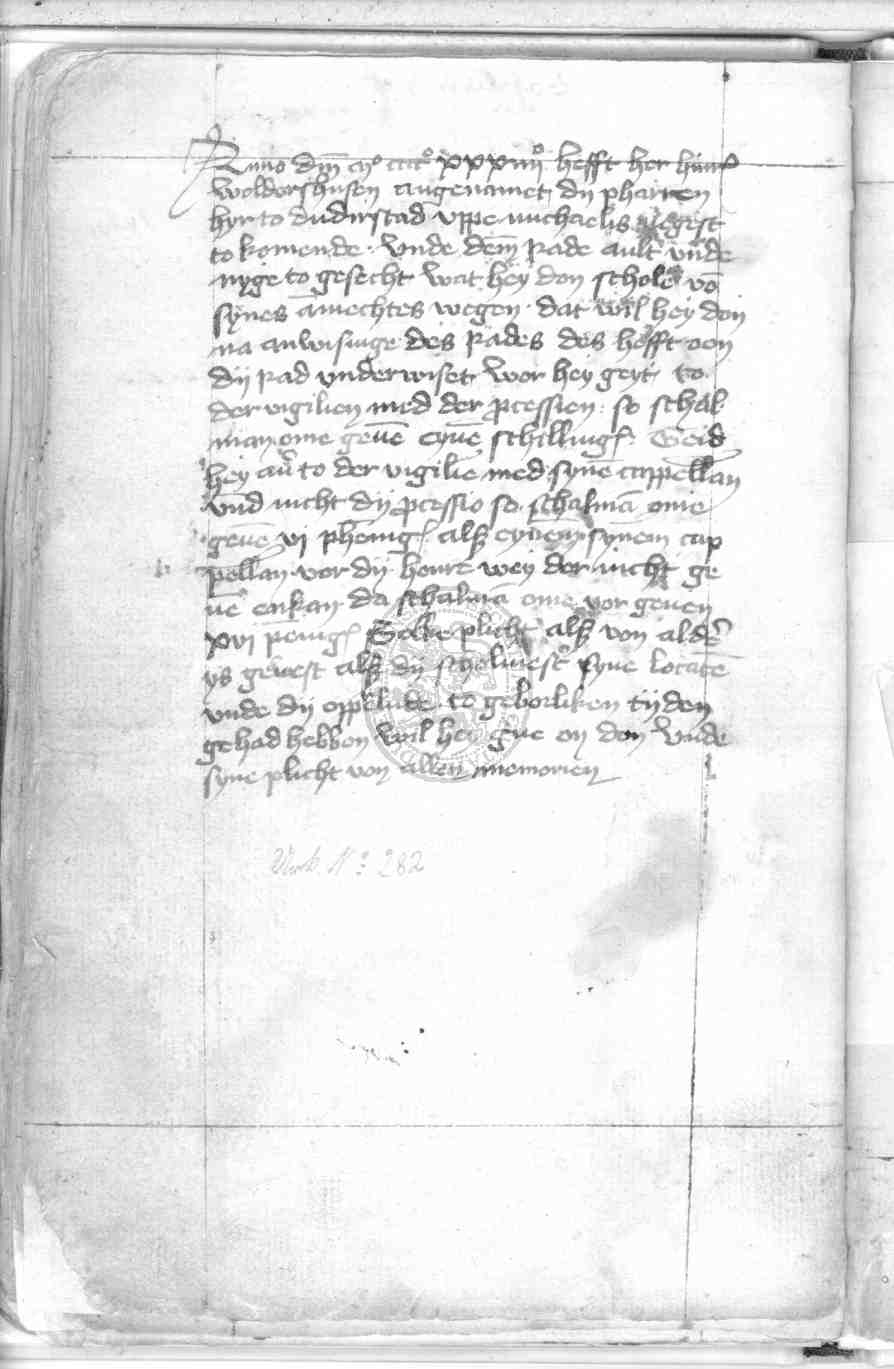 Anno dm̄ mº ccccº xxxiiiiº hefft her hinr̄
woldershusen angenamet dij pharren
hyr to dudirstad vppe michaelis negest
to komende · Vnde dem̄ rade ault vnde
nyge to gesecht wat hey don schole vō
synes āmechtes wegen · dat wil hey don
na anwisinge des rades des hefft oon
dij rad vnderwiset wor hey geyt to
der vigilien med der pcessien · so schal
man ome geuē eynē schilling Geid
hey au̓ to der vigilie med synē cappellan
vnd nicht dij pcessio so schalmā ome
geuē vj phenīg alß eynem synem cap
pellan vor dij
uē enkan da schalmā ome vor geuen
xvj penīg Solke plicht alß von aldē
ys gewest alß dij scholmest̓ syne locatē
vnde dij oppelude to geborliken tijden
gehad hebben wil hey gue on don Vnde
syne plicht von allen memorien
Urk. Nº 282